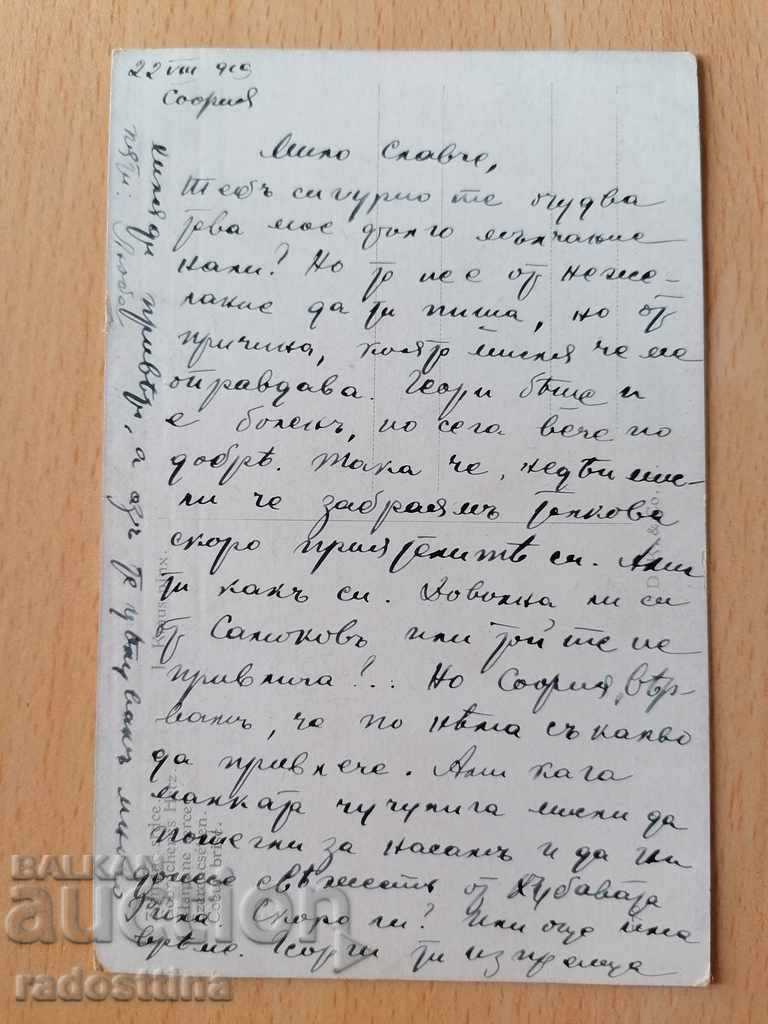 22 VIII 919
София
Мило Славче,
Тебъ сигурно те очудва
това мое дълго мълчание
нали? Но то не е от неже-
лание да ти пиша, но от
причина, която мисля че ме
оправдава. Геори бѣше и
е боленъ, но сега вече по
добрѣ. Така че, недѣй мис-
ли че забраямъ толкова
скоро приятелитѣ си. Ами
ти какъ си. Доволна ли си
от Самоковъ или той те не
привлича?.. Но София, вѣр-
вамъ, че по нѣма съ какво
да привлече. Ами кага
малката чучулига мисли да
потегли за насамъ и да ни
донесе свѣжесть от хубавата
Рила. Скоро ли? Или още има
врѣме. Георги ти изпраща
хиляди привѣти, а азъ те цѣлувамъ много
Люба
D. &Co.
BALKAN
auction
radosttina